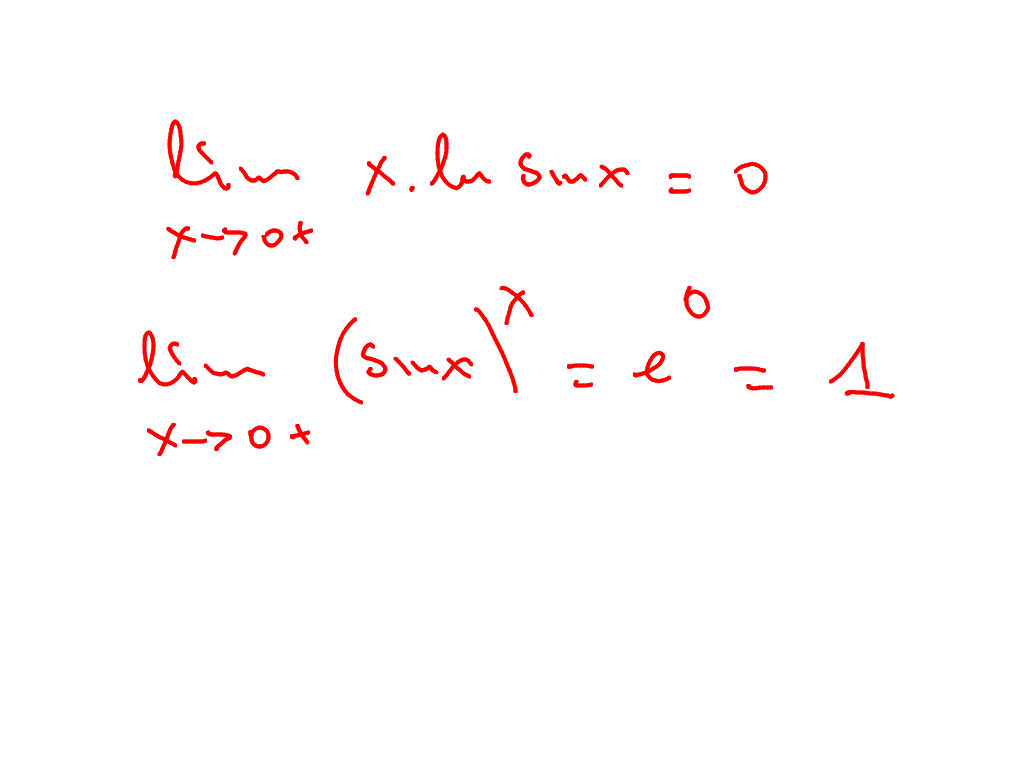 lim x→0+ x. ln sinx = 0
lim x→0+ (sinx)^x = e^0 = 1